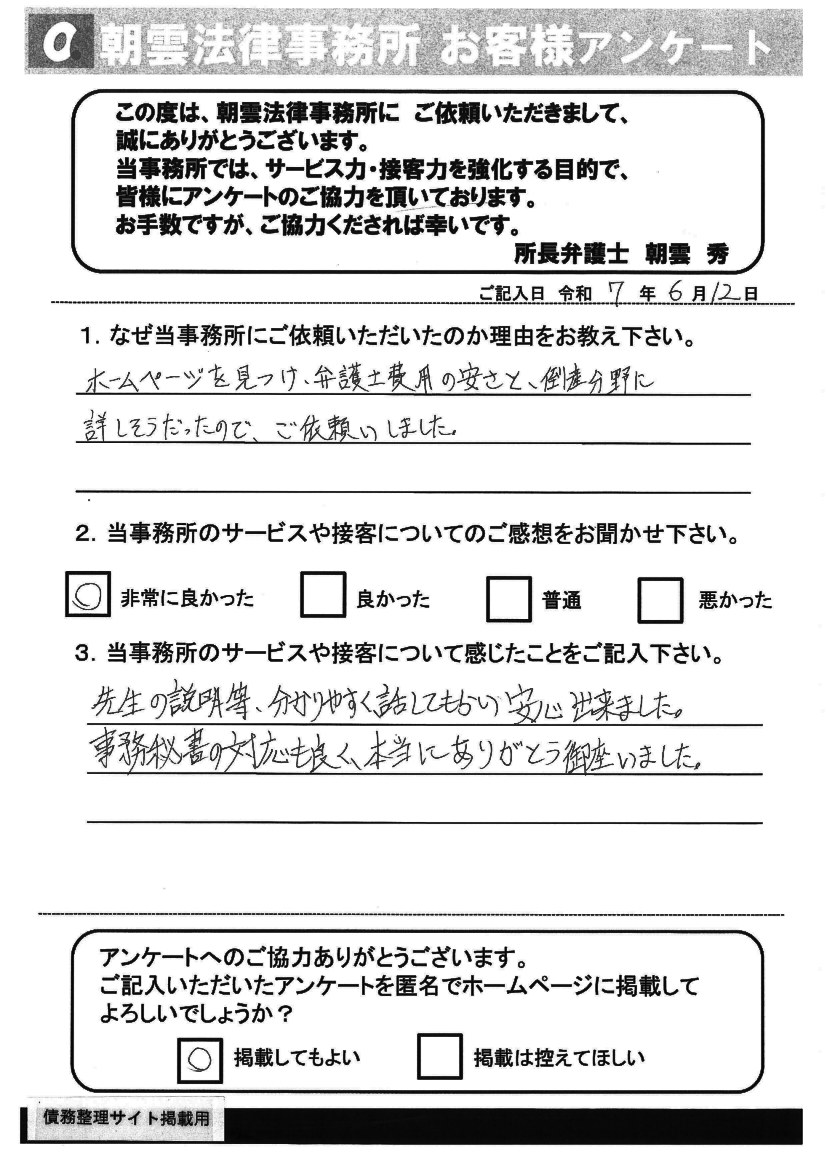 朝雲法律事務所 お客様アンケート
この度は、朝雲法律事務所に ご依頼いただきまして、
誠にありがとうございます。
当事務所では、サービス力・接客力を強化する目的で、
皆様にアンケートのご協力を頂いております。
お手数ですが、ご協力くだされば幸いです。
所長弁護士 朝雲 秀
ご記入日 令和 7 年 6 月 12 日
1. なぜ当事務所にご依頼いただいたのか理由をお教え下さい。
ホームページを見つけ、弁護士費用の安さと、倒産分野に
詳しそうだったので、ご依頼いしました。
2. 当事務所のサービスや接客についてのご感想をお聞かせ下さい。
○ 非常に良かった 良かった 普通 悪かった
3. 当事務所のサービスや接客について感じたことをご記入下さい。
先生の説明等、分かりやすく話してもらい安心出来ました。
事務秘書の対応も良く、本当にありがとう御座いました。
アンケートへのご協力ありがとうございます。
ご記入いただいたアンケートを匿名でホームページに掲載して
よろしいでしょうか？
○ 掲載してもよい 掲載は控えてほしい
債務整理サイト掲載用